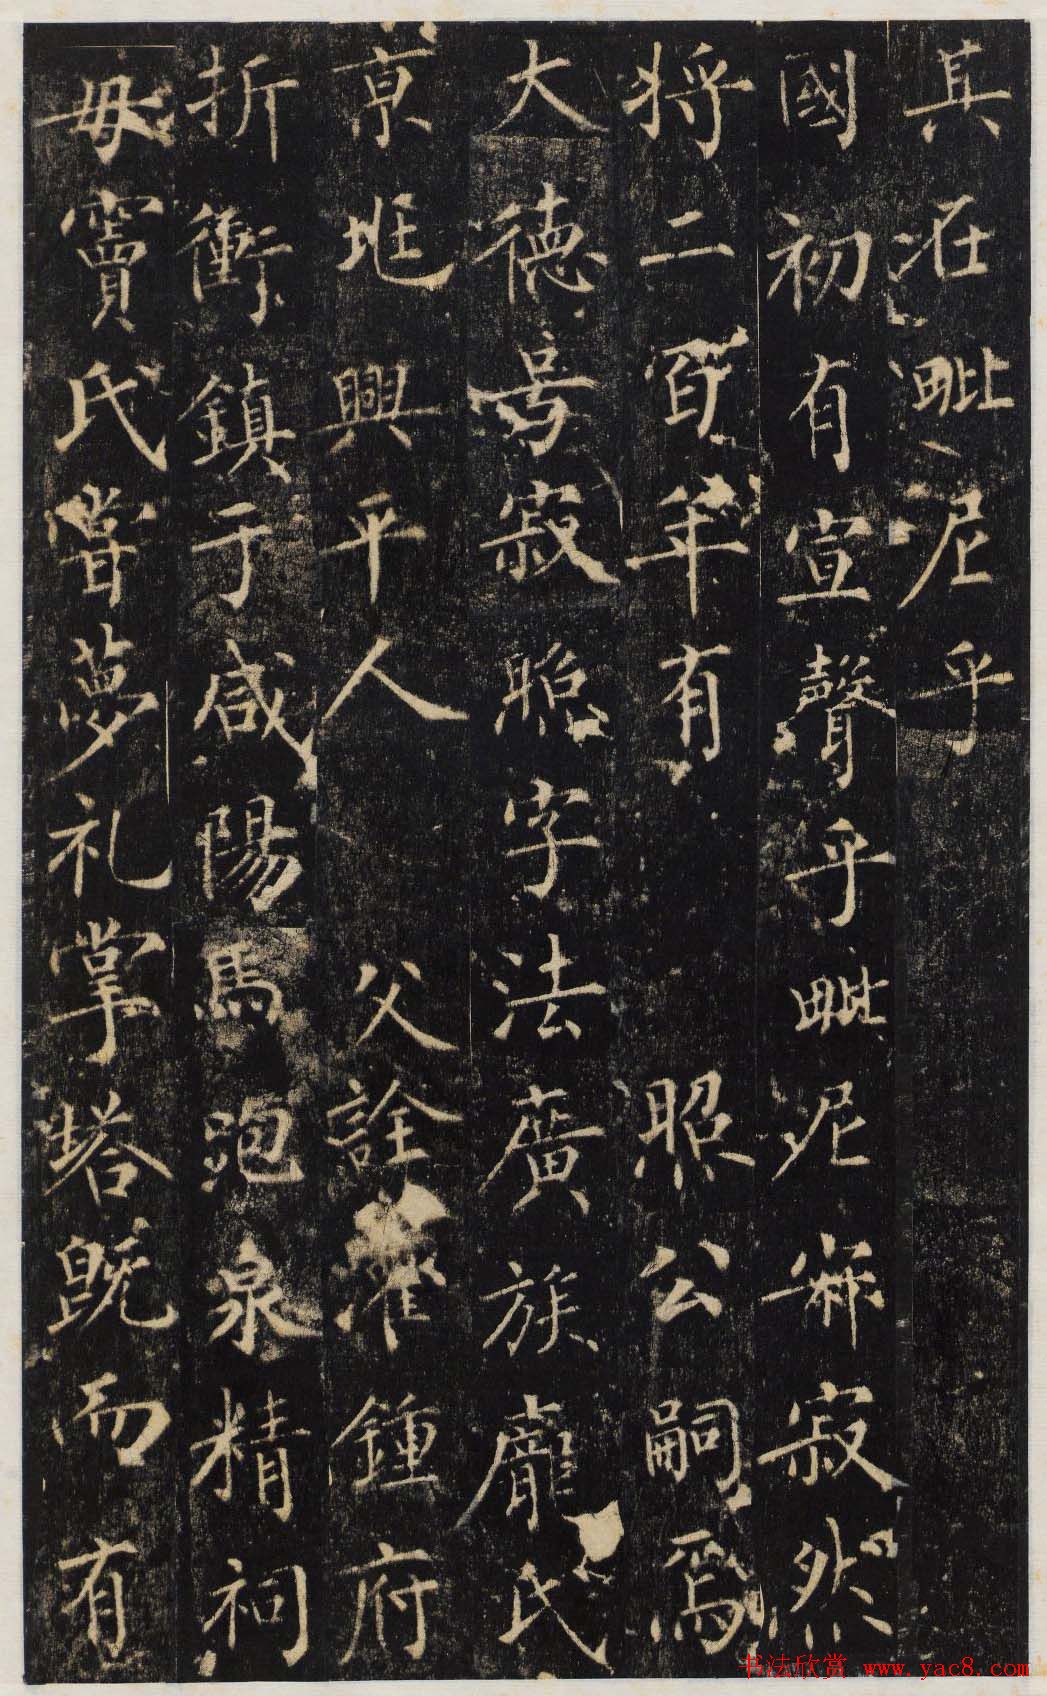 其在毗尼乎
國初有宣聲乎毗尼寂然
将二百年有 照公嗣焉
大德号寂照字法廣族龐氏
京兆興平人 父詮灌鍾府
折衝鎮于咸陽馬跑泉精祠
母竇氏嘗夢礼掌塔既而有
书法欣赏 www.yac8.com